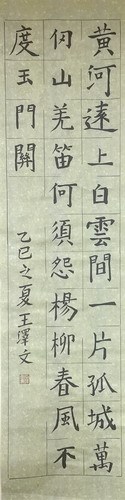 黃河遠上白雲間一片孤城萬
仞山羌笛何須怨楊柳春風不
度玉門關
乙巳之夏王澤文